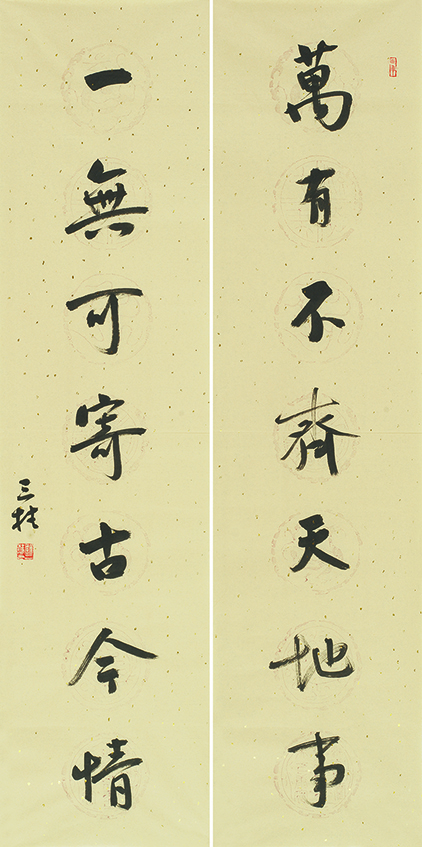 萬有不齊天地事
一無可寄古今情
三桂